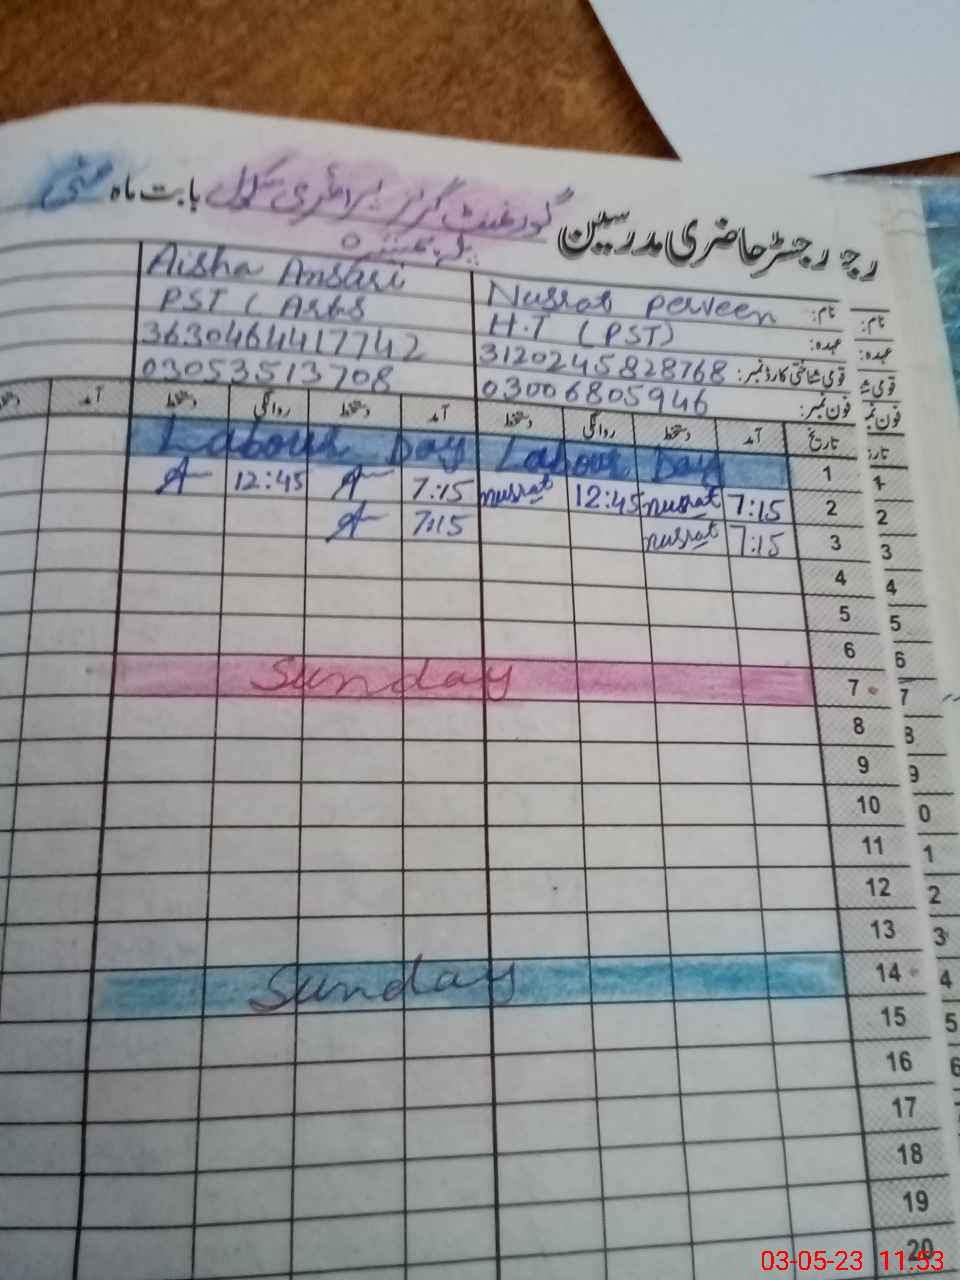 رجسٹر حاضری مدرسین گورنمنٹ گرلز پرائمری سکول بابت ماہ مئی
نام: Nusrat Perveen Aisha Ansari
عہدہ: H.T (PST) PST (Arts
قومی شناختی کارڈ نمبر: 3120245828768 3630464417742
فون نمبر: 03006805946 03053513708
تاریخ آمد دستخط روانگی دستخط آمد دستخط روانگی دستخط آمد
1 Labour Day Labour Day
2 7:15 nusrat 12:45 nusrat 7:15 A 12:45 A
3 7:15 nusrat 7:15 A
4
5
6
7 Sunday
8
9
10
11
12
13
14 Sunday
15
16
17
18
19
20
نام:
عہدہ:
1
2
3
4
5
6
7
8
9
0
1
2
3
4
5
6
03-05-23 11:53